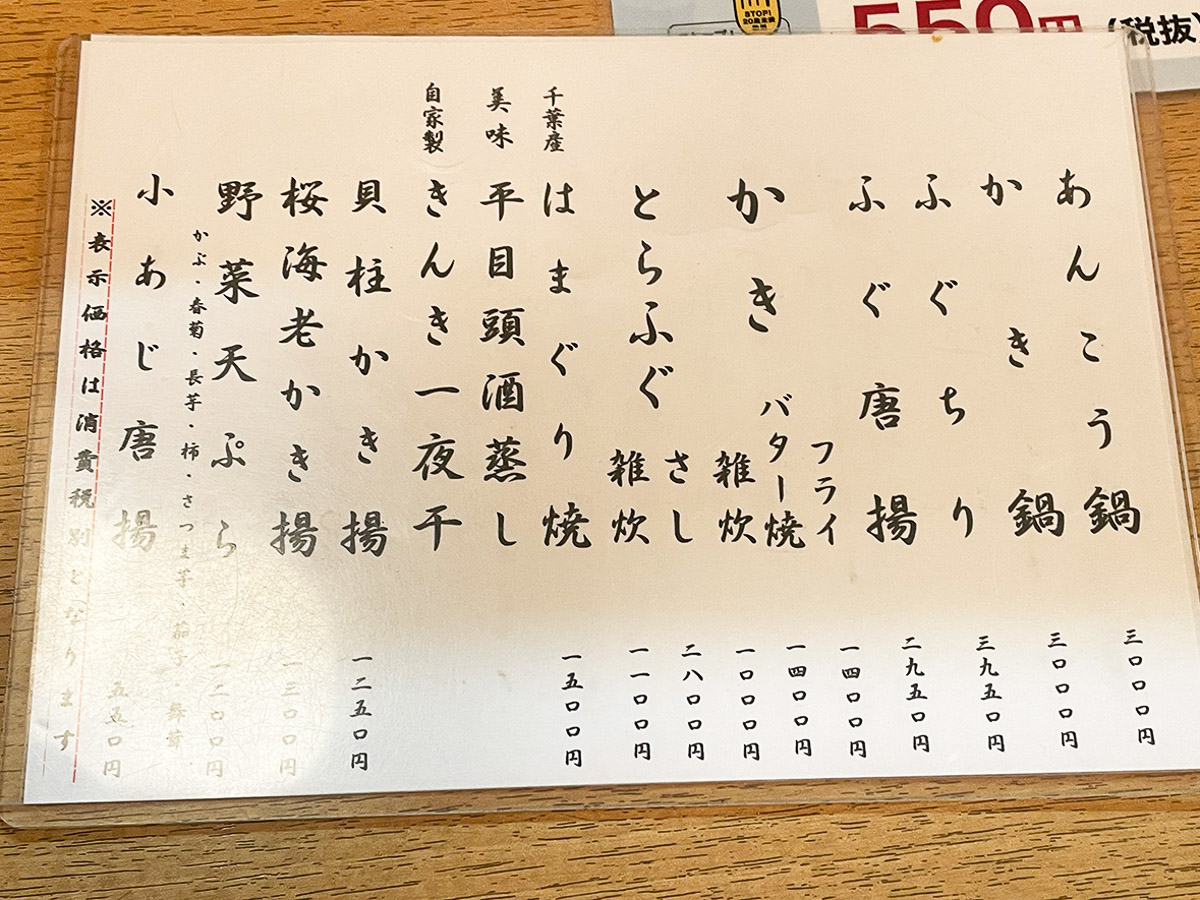 STOP!
550円
(税抜)
あんこう鍋 三〇〇〇円
かき鍋 三〇〇〇円
ふぐちり 三九五〇円
ふぐ唐揚 二九五〇円
かき
フライ 一四〇〇円
バター焼 一四〇〇円
雑炊 一〇〇〇円
とらふぐ
さし 二八〇〇円
雑炊 一一〇〇円
千葉産 はまぐり焼 一五〇〇円
美味 平目頭酒蒸し
自家製 きんき一夜干
貝柱かき揚 一二五〇円
桜海老かき揚 一三〇〇円
野菜天ぷら 一二〇〇円
かぶ・春菊・長芋・柿・さつま芋・茄子・舞茸
小あじ唐揚 五五〇円
※表示価格は消費税別となります